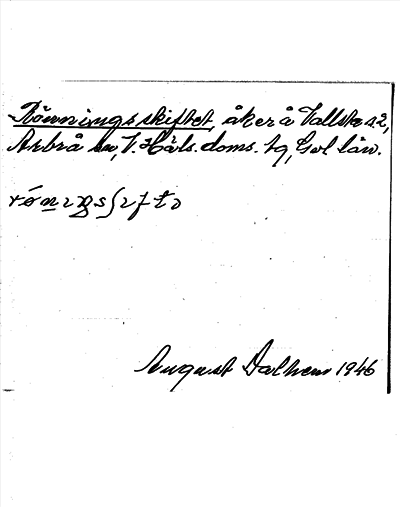 Rönningsskiftet, åker å Vallsta s.2,
Arbrå sn, V. Häls. doms. tg, Gvl län.
August Dalhem 1946